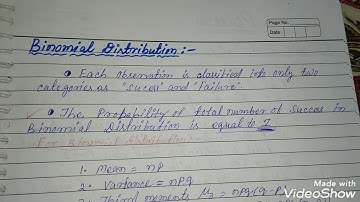 Page No.
Date
Binomial Distribution:-
• Each observation is classified into only two
categories as "Success" and "Failure".
• The Probability of total number of Success in
Binomial Distribution is equal to 1
For Binomial Distribution:
1. Mean = np
2. Variance = npq
3. Third moments μ3 = npq(q-p)
Made with
VideoShow